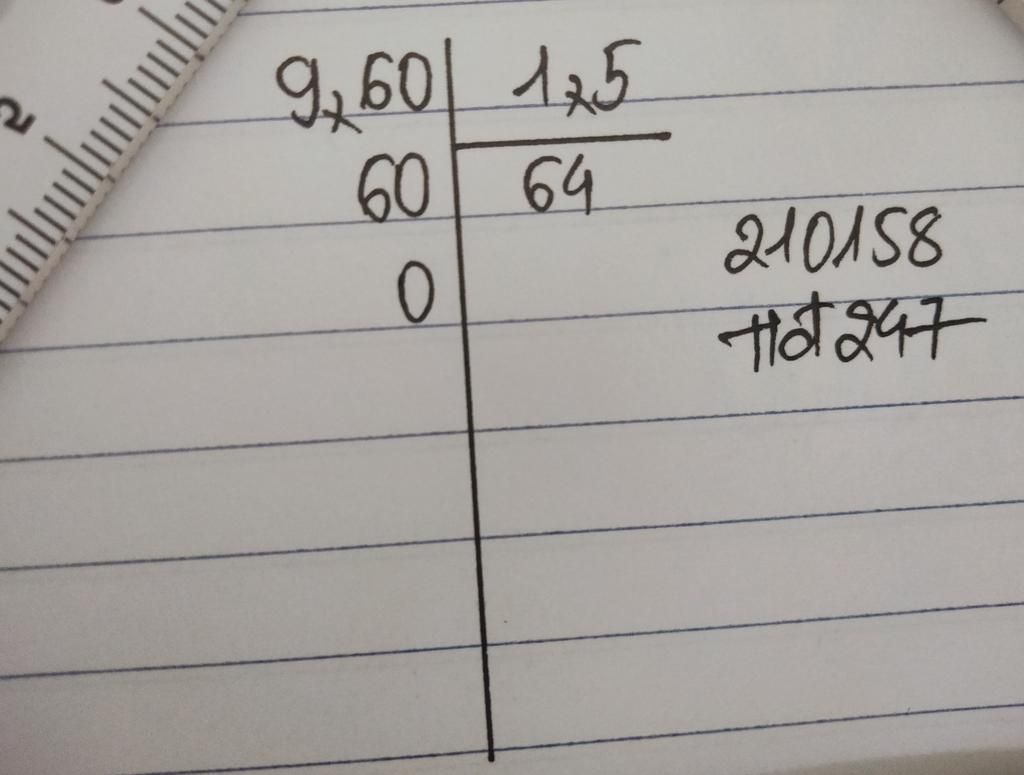 9,60 1,5
60 64
0
210158
Hot247
2